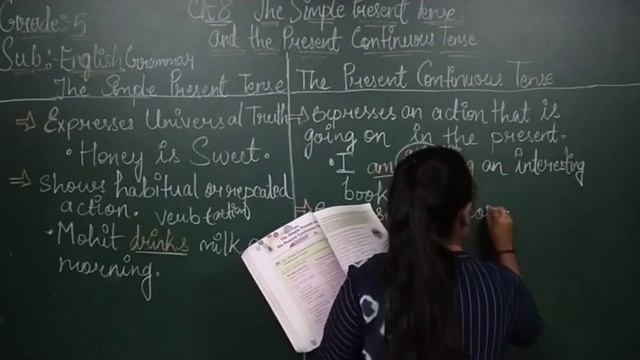 Grade:- 5
Ch-8 The Simple Present tense
and the Present Continuous Tense
Sub:- English Grammar
The Simple Present Tense
⇒ Expresses Universal Truth
• Honey is Sweet.
⇒ shows habitual or repeated
action. verb (action)
• Mohit drinks milk
morning.
The Present Continuous Tense
⇒ expresses an action that is
going on in the present.
• I am an interesting
book